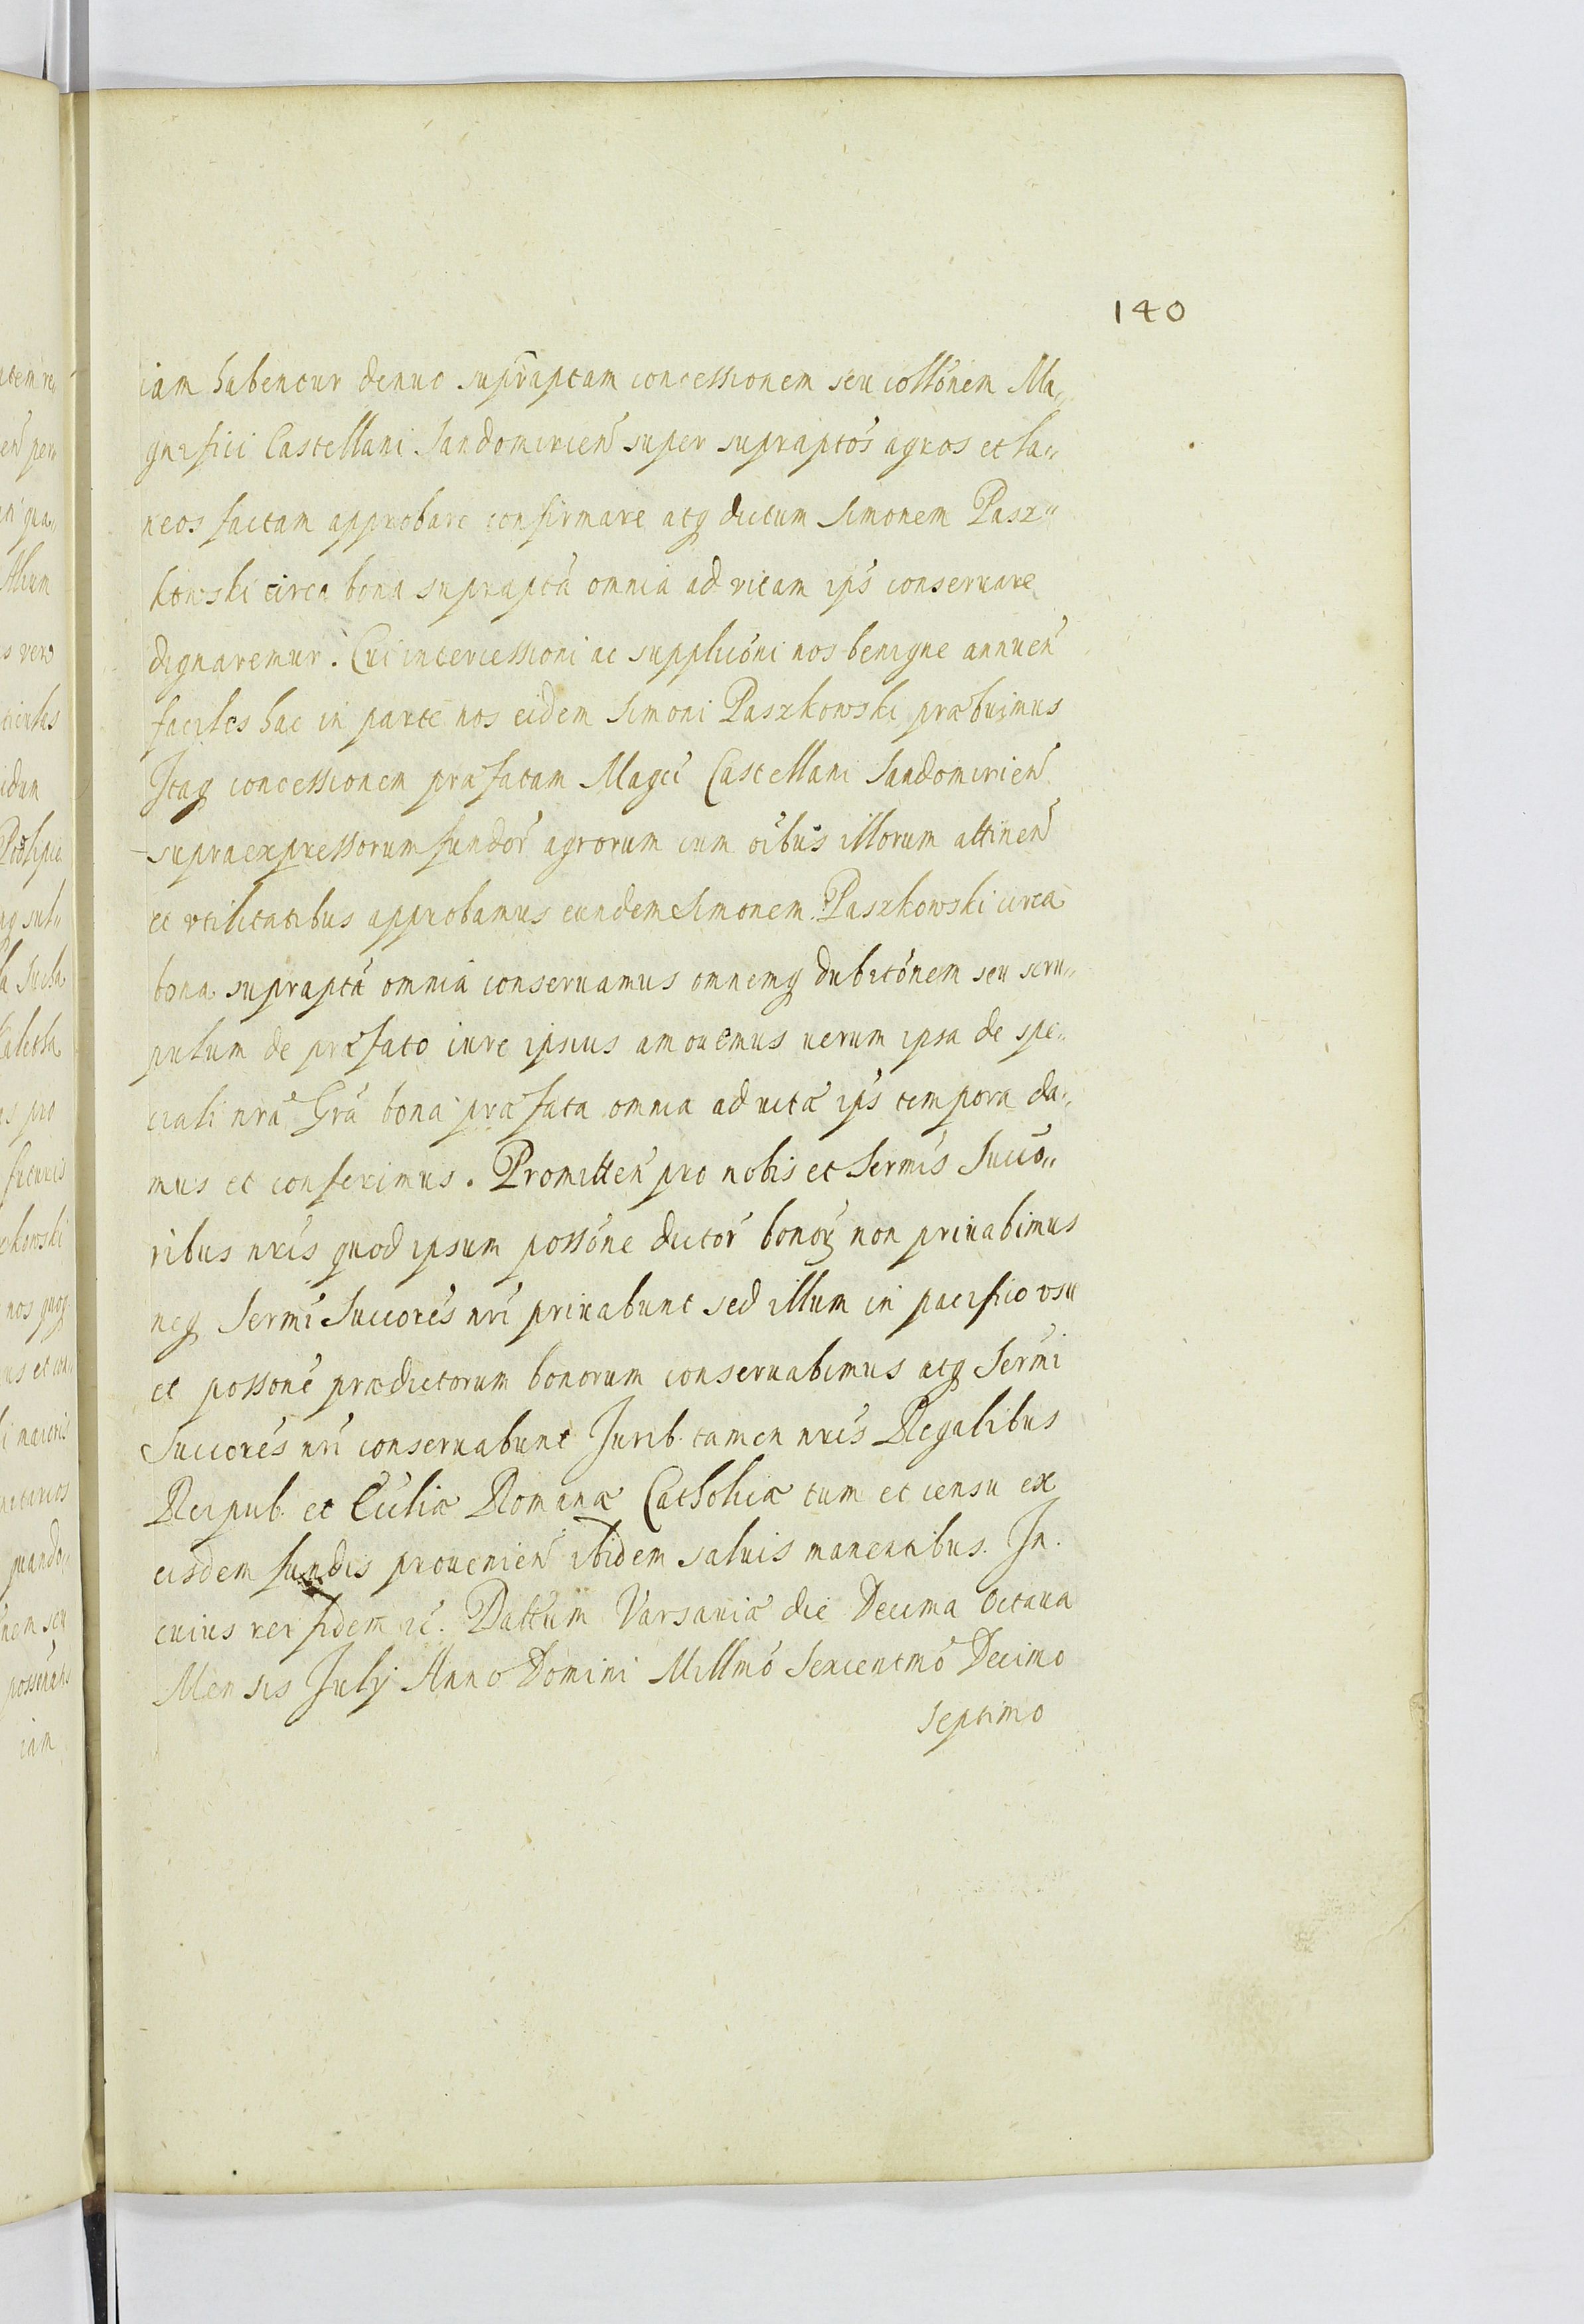 140
iam habentur denuo supraptam concessionem seu collonem Ma„
gnifici Castellani Sandomirien super supraptos agros et la„
neos factam approbare confirmare atq dictum Simonem Pasz„
kowski circa bona suprapta omnia ad vitam ips conseruare
dignaremur. Cui intercessioni ac supplicōni nos benigne annuen
faciles hac in parte nos eidem Simoni Paszkowski præbuimus
Itaq concessionem præfatam Magci Castellani Sandomirien
supraexpressorum fundor agrorum cum oibus illorum attinen
et vtilitatibus approbamus eundem Simonem Paszkowski circa
bona suprapta omnia conseruamus omnemq dubitōnem seu scru„
pulum de præfato iure ipsius amouemus uerum ipsa de spe„
ciali nra Gra bona præfata omnia ad uitæ ips tempora da„
mus et conferimus. Promitten pro nobis et Sermis Succo„
ribus nris quod ipsum possōne dictor bonorꝫ non priuabimus
neq Sermi Succores nri priuabunt sed illum in pacifico vsu
et possone prædictorum bonorum conseruabimus atq Sermi
Succores nri conseruabunt Jurib. tamen nris Regalibus
Reipub. et Eccliæ Romanæ Catholicæ tum et censu ex
eisdem fundis prouenien ibidem saluis manentibus. In
cuius rei fidem &c. Dattum Varsauiæ die Decima Octaua
Mensis July Anno Domini Millmo Sexcentmo Decimo
septimo